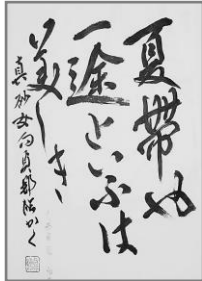 夏帯や
一途といふは
美しき
真砂女句